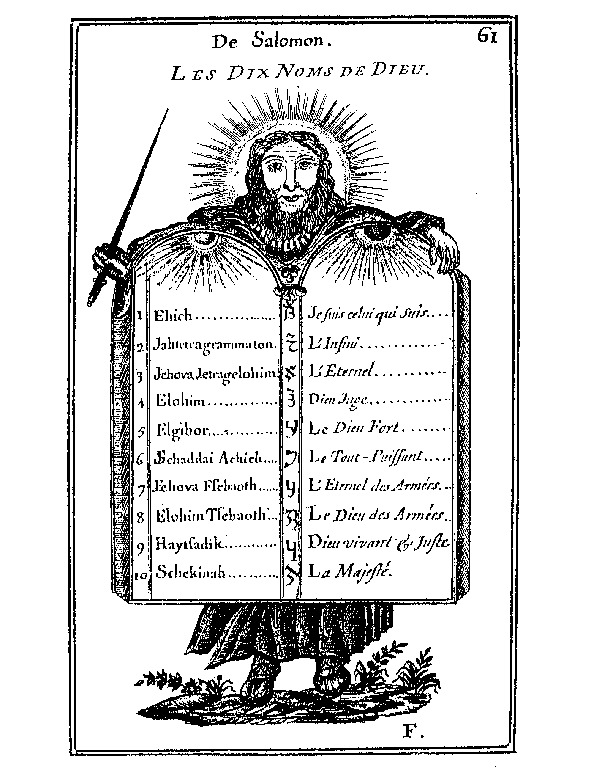 De Salomon. 61
LES DIX NOMS DE DIEU.
1 Ehieh Je suis celui qui suis.
2 Jahtetragrammaton L'Infini
3 Jehova Jetragelohim L'Eternel
4 Elohim Dieu Juge
5 Elgibor Le Dieu Fort
6 Schaddai Achieh Le Tout-Puissant
7 Jehova Tsebaoth L'Eternel des Armées.
8 Elohim Tsebaoth Le Dieu des Armées.
9 Haytsadik Dieu vivant & Juste
10 Schekinah La Majesté.
F.